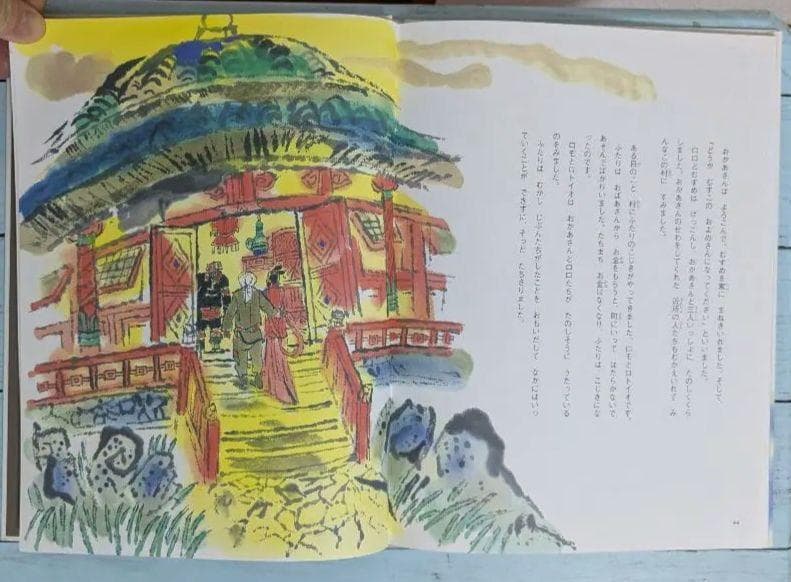 おかあさんは よろこんで、むすめを家に まねきいれました。そして、
「どうか むすこの およめさんになってください」といいました。
ロロとむすめは けっこんし、おかあさんと三人いっしょに たのしくくら
しました。おかあさんのせわをしてくれた 近所の人たちもむかえいれて み
んなこの村に すみました。
ある日のこと、村にふたりのこじきがやってきました。ロモとロトイオです。
ふたりは おばあさんから お金をもらうと、町にいって はたらかないで
あそんでばかりいました。たちまち お金はなくなり、ふたりは こじきにな
ったのです。
ロモとロトイオは おかあさんとロロたちが たのしそうに うたっている
のをみました。
ふたりは むかし じぶんたちがしたことを おもいだして なかにはいっ
ていくことが できずに、そっと たちさりました。